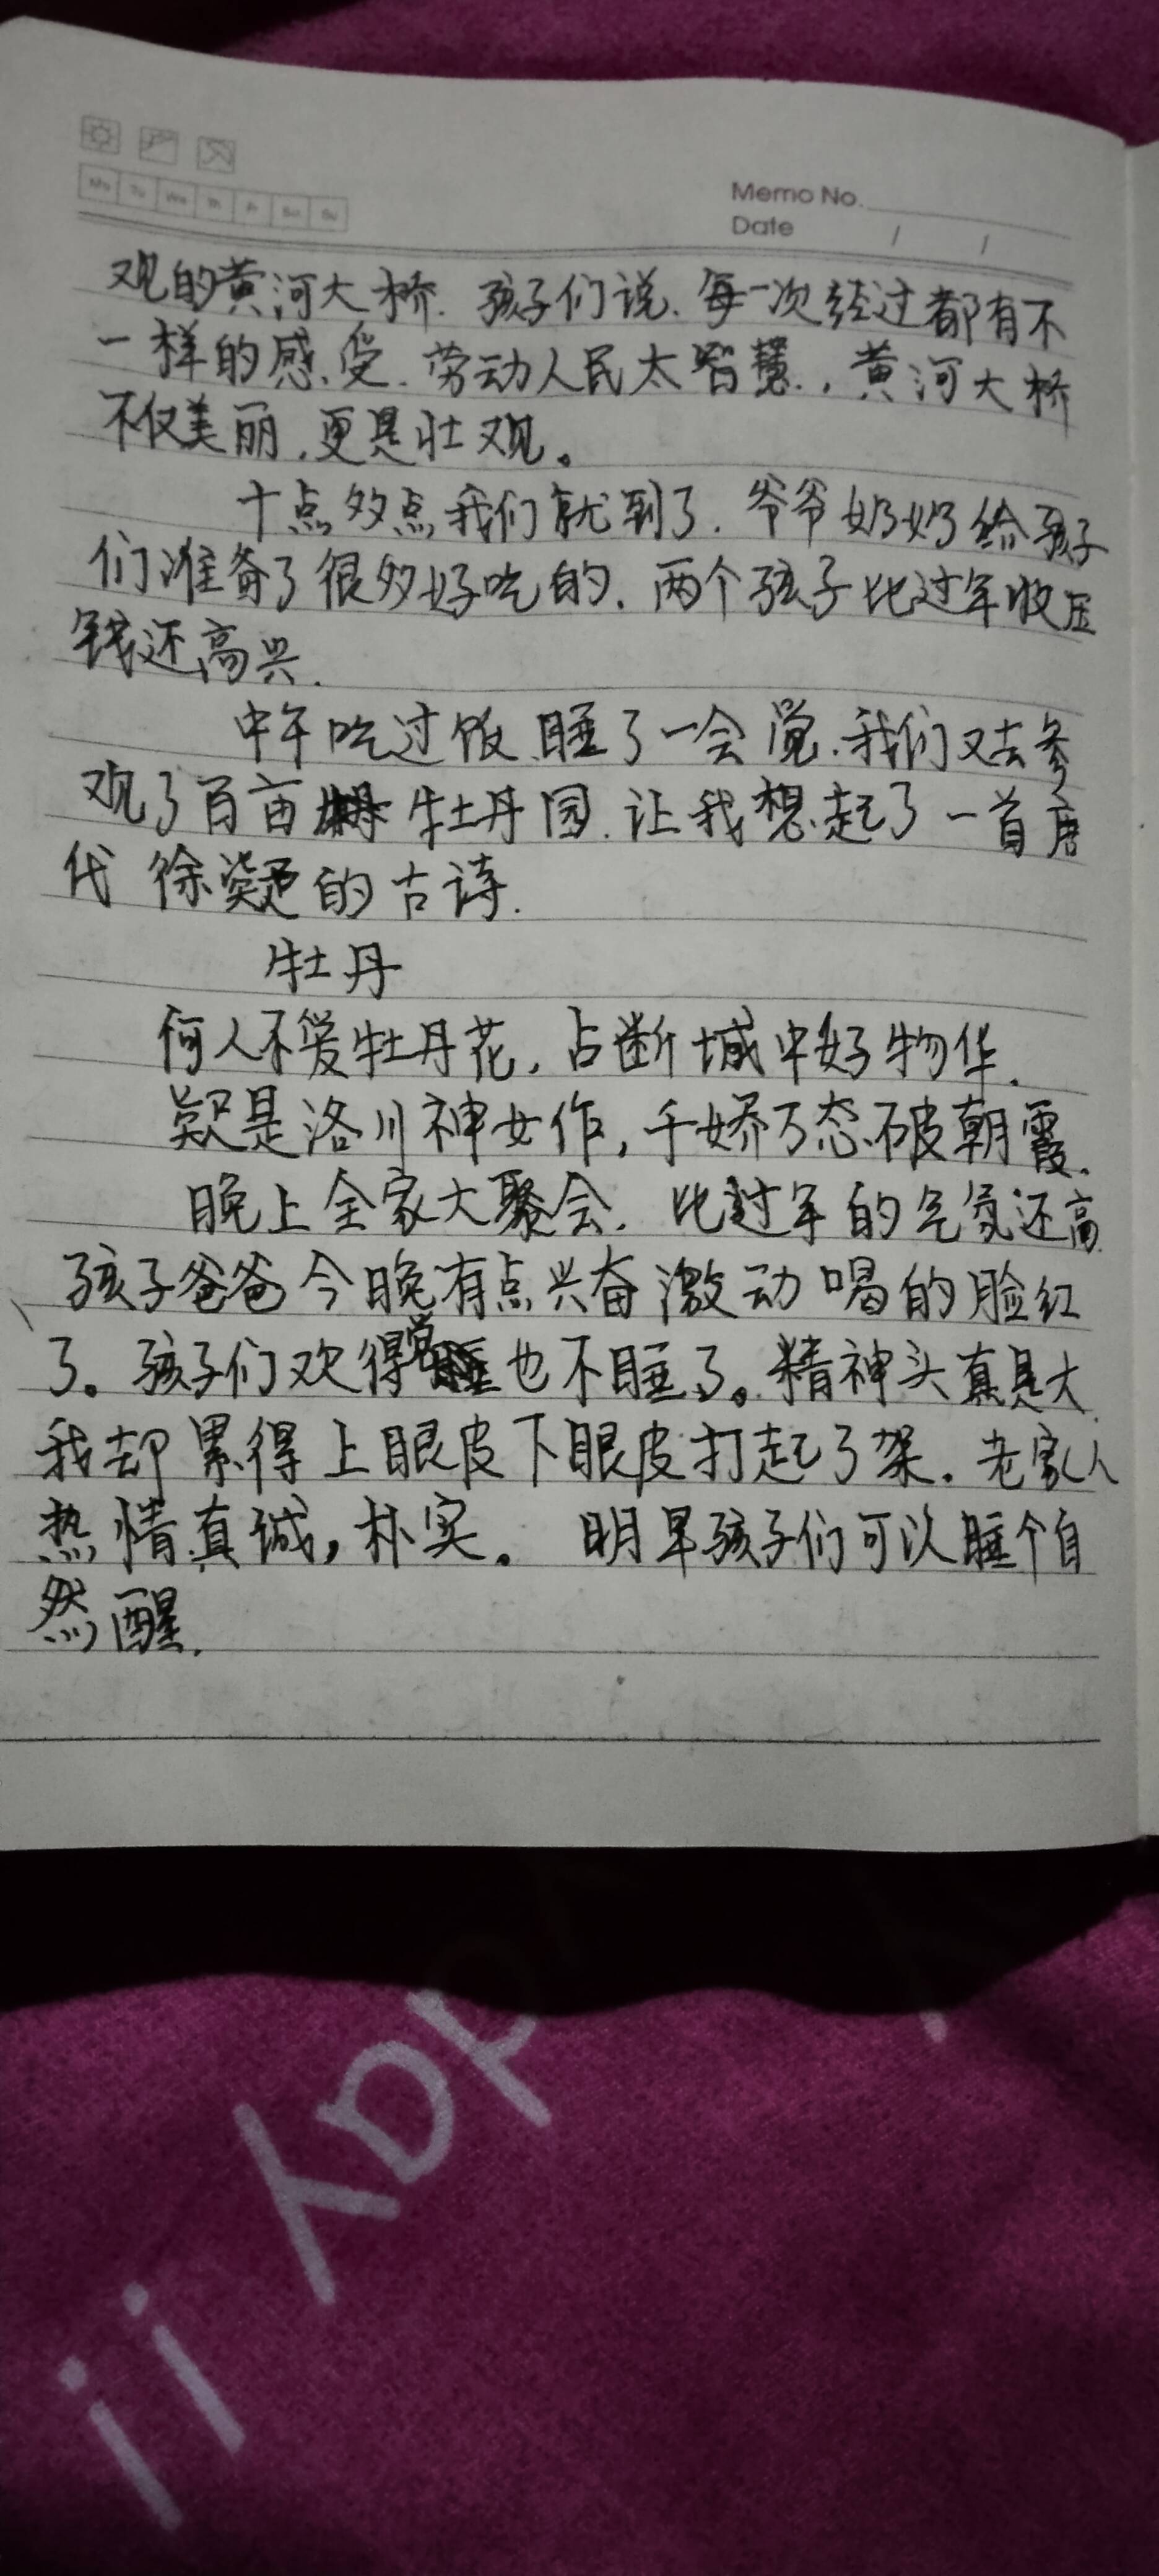 Mo Tu We Th Fr Sa Su
Memo No.
Date / /
观的黄河大桥.孩子们说.每一次经过都有不
一样的感受.劳动人民太智慧.,黄河大桥
不仅美丽,更是壮观。
十点多点我们就到了.爷爷奶奶给孩子
们准备了很多好吃的.两个孩子比过年收压
钱还高兴.
中午吃过饭睡了一会觉.我们又去参
观了百亩牡丹园.让我想起了一首唐
代徐凝的古诗.
牡丹
何人不爱牡丹花,占断城中好物华.
疑是洛川神女作,千娇万态破朝霞.
晚上全家大聚会.比过年的气氛还高.
孩子爸爸今晚有点兴奋激动喝的脸红
了。孩子们欢得觉也不睡了。精神头真是大.
我却累得上眼皮下眼皮打起了架.老家人
热情真诚,朴实。明早孩子们可以睡个自
然醒.